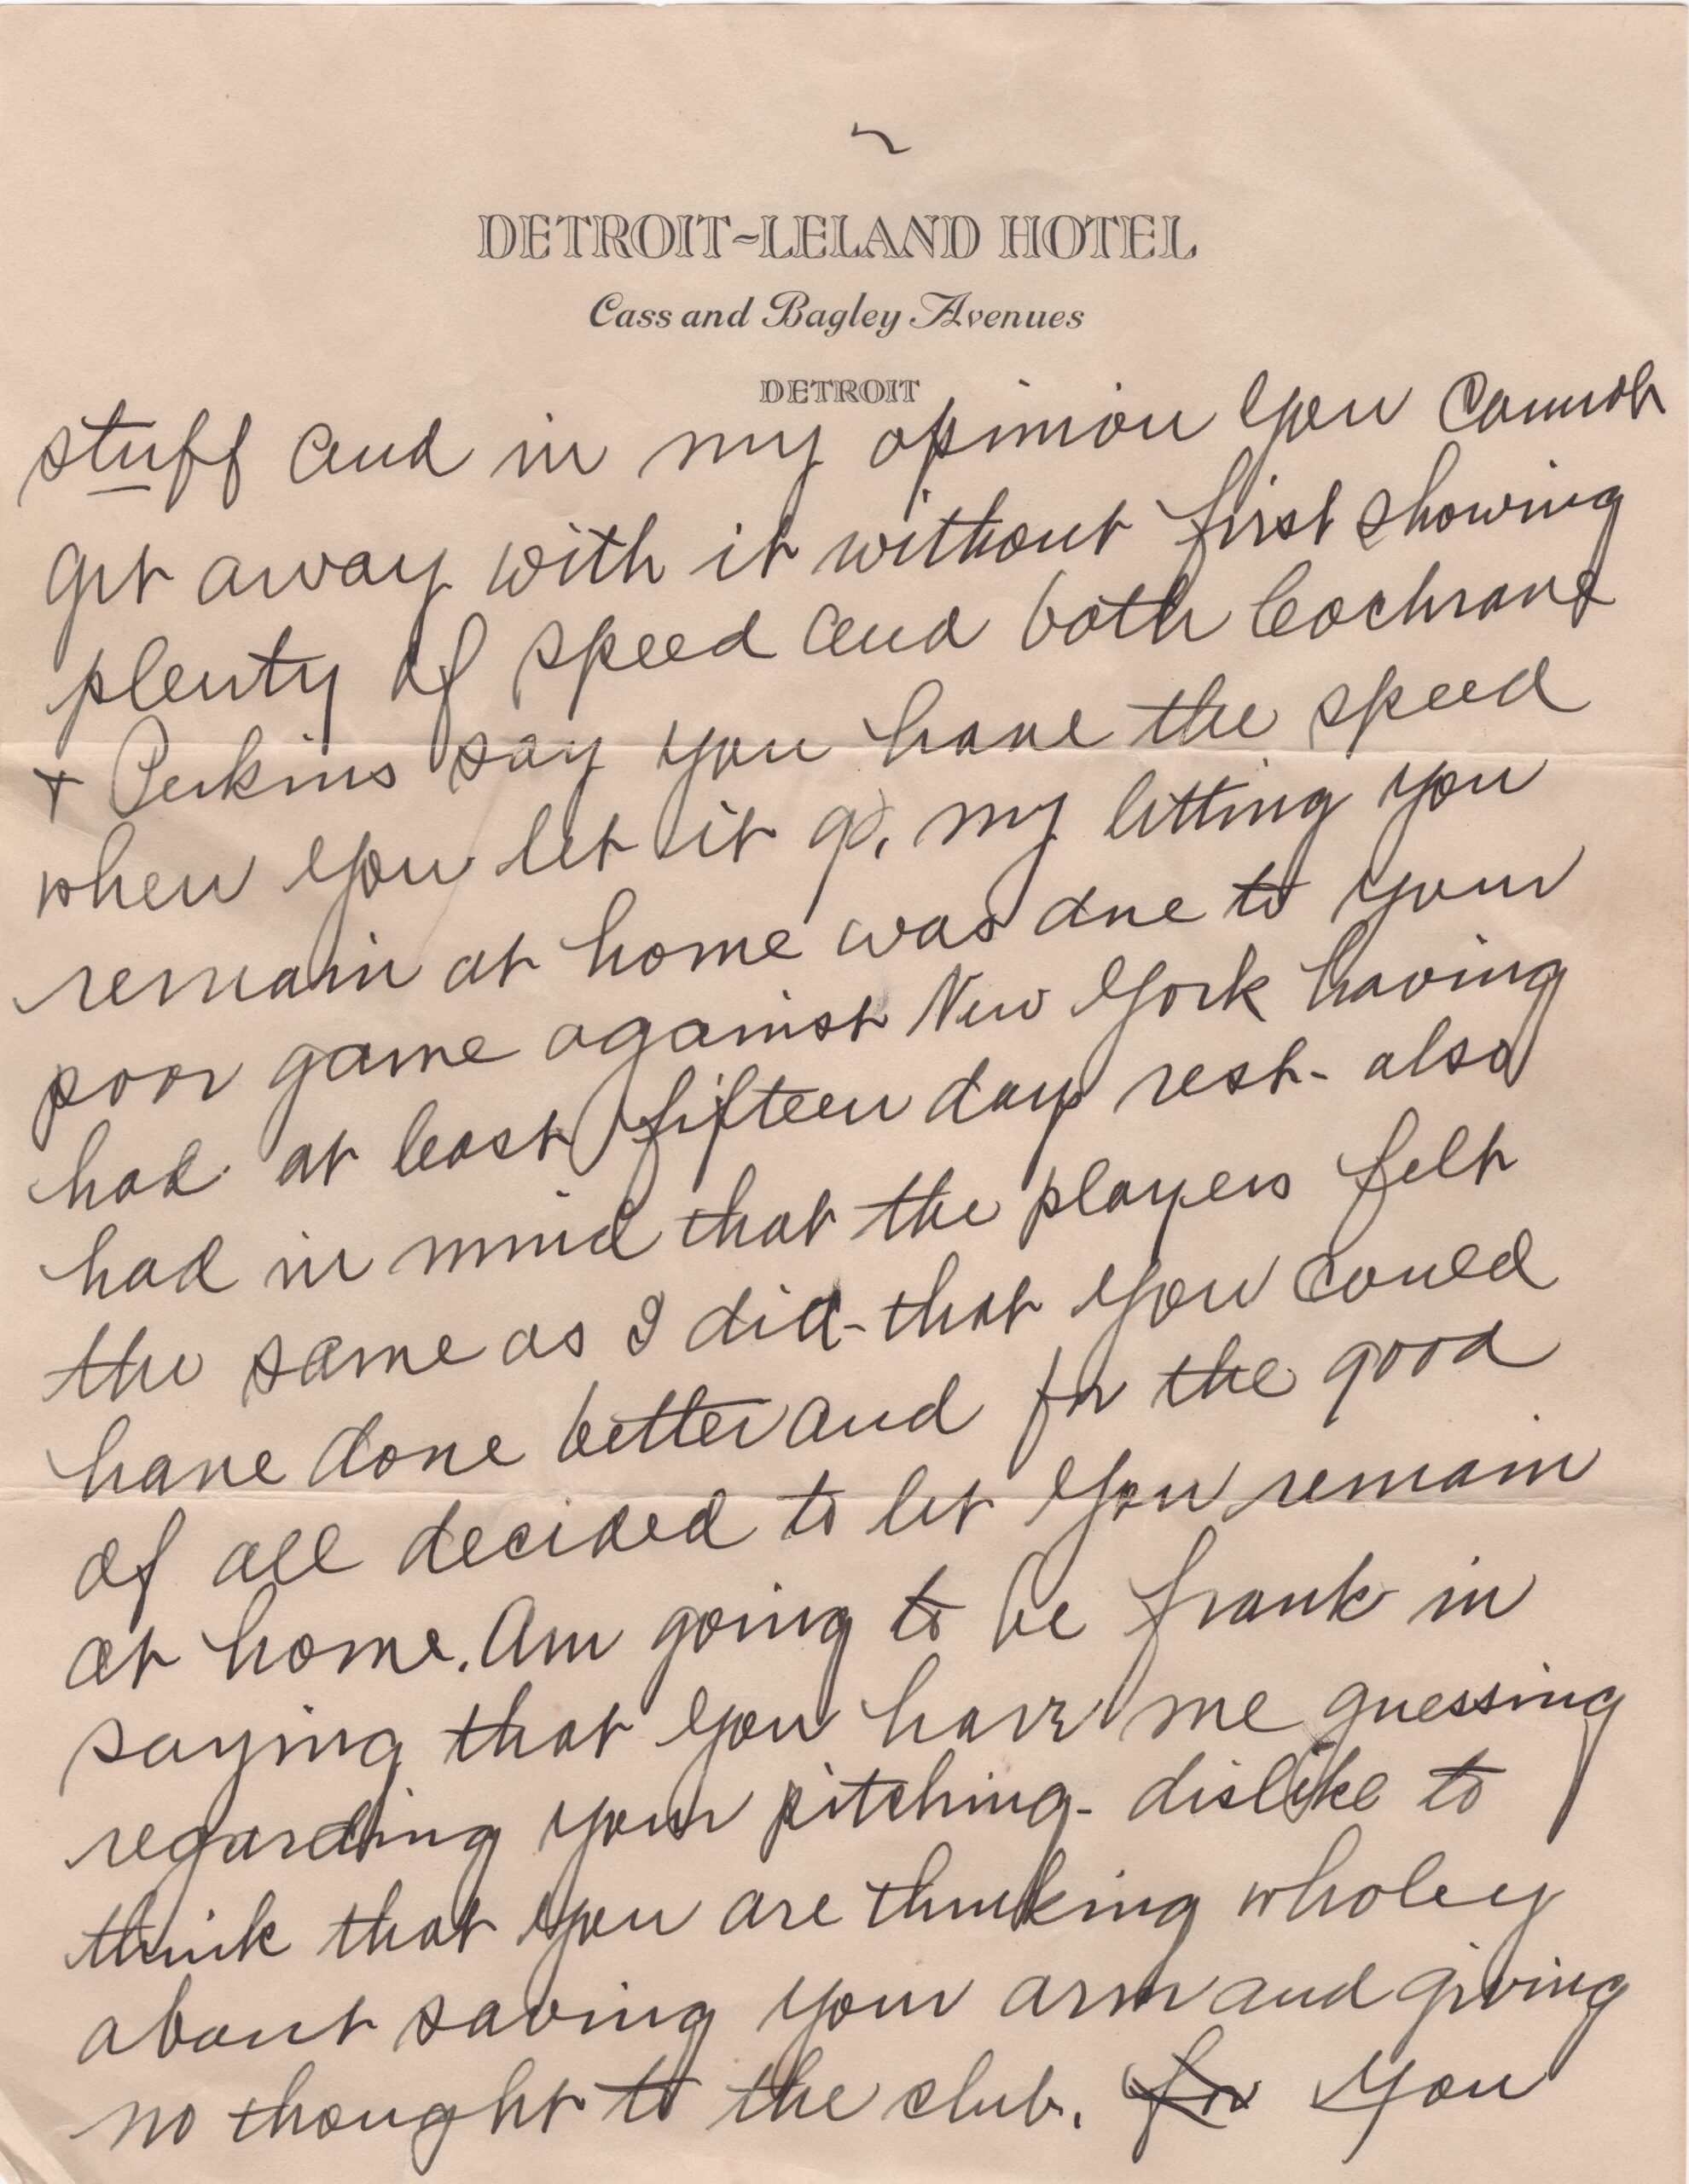 DETROIT-LELAND HOTEL
Cass and Bagley Avenues
DETROIT
stuff and in my opinion you cannot
get away with it without first showing
plenty of speed and both Cochrane
+ Perkins say you have the speed
when you let it go, my letting you
remain at home was due to your
poor game against New York having
had at least fifteen days rest - also
had in mind that the players felt
the same as I did - that you could
have done better and for the good
of all decided to let you remain
at home. Am going to be frank in
saying that you have me guessing
regarding your pitching - dislike to
think that you are thinking wholey
about saving your arm and giving
no thought to the club. for You